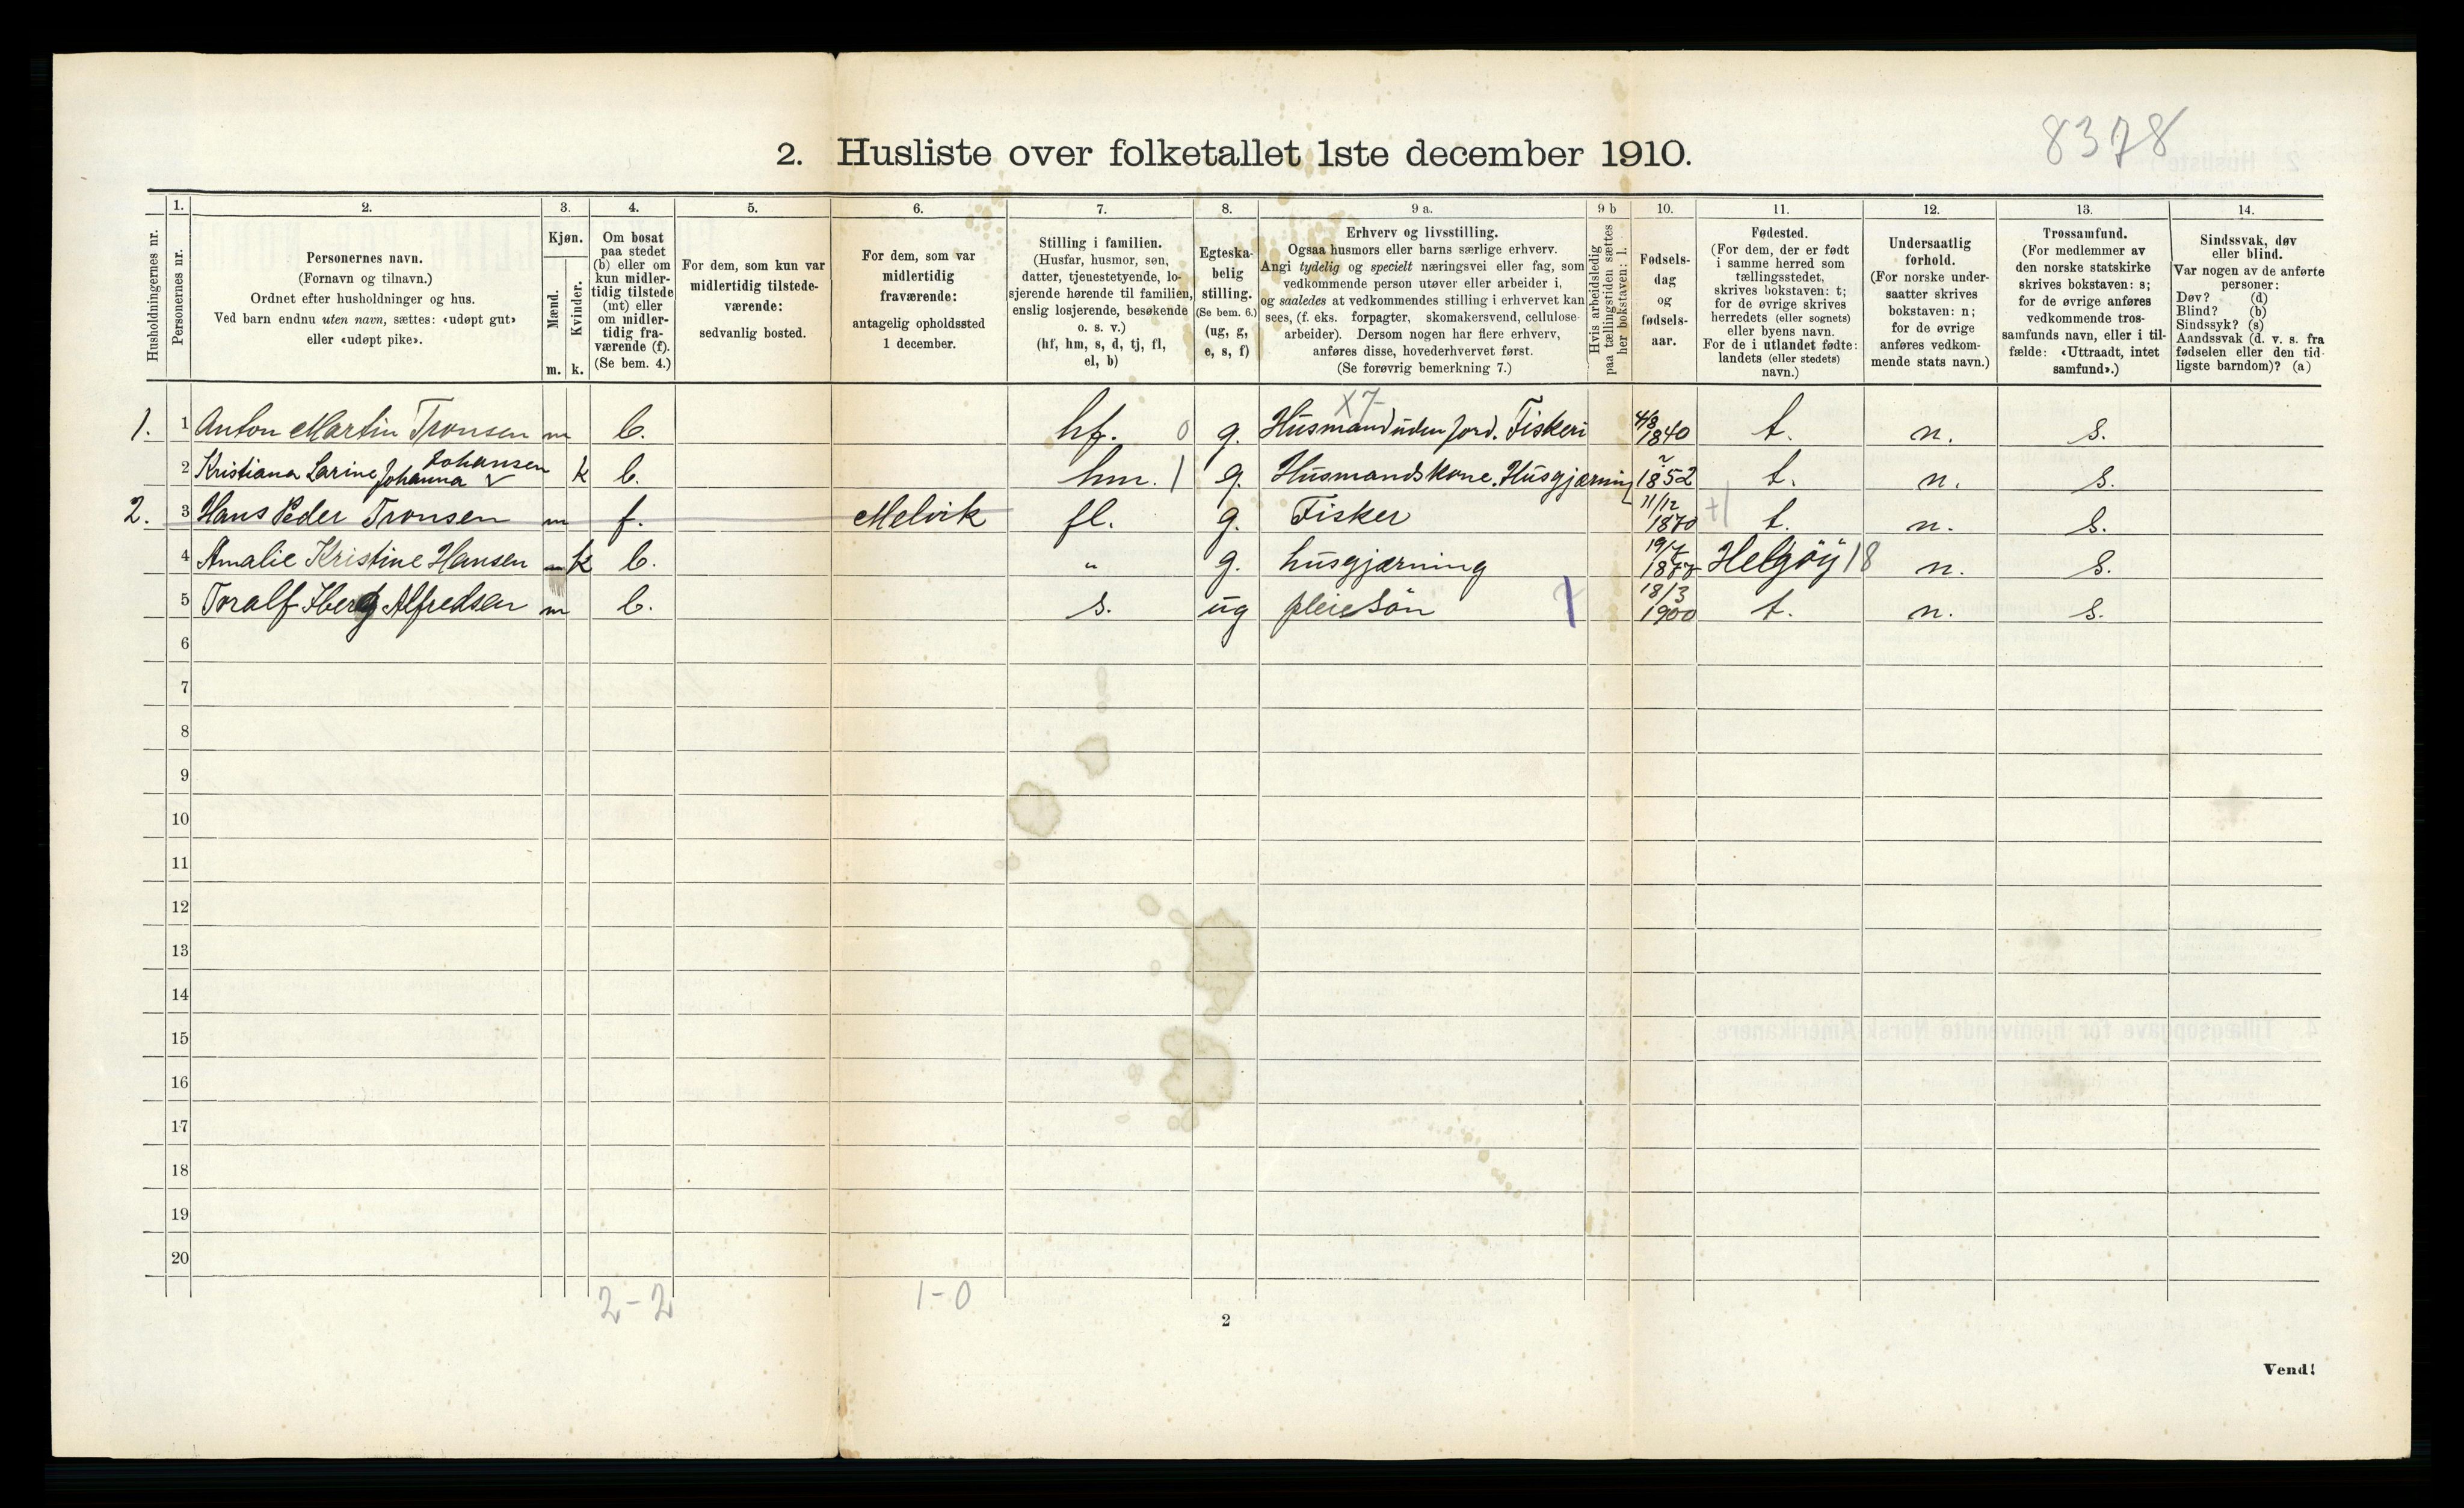 8378
2. Husliste over folketallet 1ste december 1910.
Husholdningernes nr.
1.
Personernes nr.
2.
Personernes navn.
(Fornavn og tilnavn.)
Ordnet efter husholdninger og hus.
Ved barn endnu uten navn, sættes: «udøpt gut»
eller «udøpt pike».
3.
Kjøn.
Mænd.
Kvinder.
m. k.
4.
Om bosat
paa stedet
(b) eller om
kun midler-
tidig tilstede
(mt) eller
om midler-
tidig fra-
værende (f).
(Se bem. 4.)
5.
For dem, som kun var
midlertidig tilstede-
værende:
sedvanlig bosted.
6.
For dem, som var
midlertidig
fraværende:
antagelig opholdssted
1 december.
7.
Stilling i familien.
(Husfar, husmor, søn,
datter, tjenestetyende, lo-
sjerende hørende til familien,
enslig losjerende, besøkende
o. s. v.)
(hf, hm, s, d, tj, fl,
el, b)
8.
Egteska-
belig
stilling.
(Se bem. 6.)
(ug, g,
e, s, f)
9 a.
Erhverv og livsstilling.
Ogsaa husmors eller barns særlige erhverv.
Angi tydelig og specielt næringsvei eller fag, som
vedkommende person utøver eller arbeider i,
og saaledes at vedkommendes stilling i erhvervet kan
sees, (f. eks. forpagter, skomakersvend, cellulose-
arbeider). Dersom nogen har flere erhverv,
anføres disse, hovederhvervet først.
(Se forøvrig bemerkning 7.)
9 b
Hvis arbeidsledig
paa tællingstiden sættes
her bokstaven: l.
10.
Fødsels-
dag
og
fødsels-
aar.
11.
Fødested.
(For dem, der er født
i samme herred som
tællingsstedet,
skrives bokstaven: t;
for de øvrige skrives
herredets (eller sognets)
eller byens navn.
For de i utlandet fødte:
landets (eller stedets)
navn.)
12.
Undersaatlig
forhold.
(For norske under-
saatter skrives
bokstaven: n;
for de øvrige
anføres vedkom-
mende stats navn.)
13.
Trossamfund.
(For medlemmer av
den norske statskirke
skrives bokstaven: s;
for de øvrige anføres
vedkommende tros-
samfunds navn, eller i til-
fælde: «Uttraadt, intet
samfund».)
14.
Sindssvak, døv
eller blind.
Var nogen av de anførte
personer:
Døv? (d)
Blind? (b)
Sindssyk? (s)
Aandssvak (d. v. s. fra
fødselen eller den tid-
ligste barndom)? (a)
1. 1 Anton Martin Tronsen m b. hf. 0 g. X7- Husmand uden jord. Fiskeri 4/8 1840 t. n. s.
2 Kristiana Larine Johanna Johansen k b. hm. 1 g. Husmandskone. Husgjærning 1852 t. n. s.
2. 3 Hans Peder Tronsen m f. Melvik fl. g. Fisker 11/12 1870 +1 t. n. s.
4 Amalie Kristine Hansen k b. " g. husgjærning 19/7 1877 Helgöy 18 n. s.
5 Toralf Iberg Alfredsen m b. s. ug pleiesön 18/3 1900 t. n. s.
6
7
8
9
10
11
12
13
14
15
16
17
18
19
20
2-2 1-0
2
Vend!